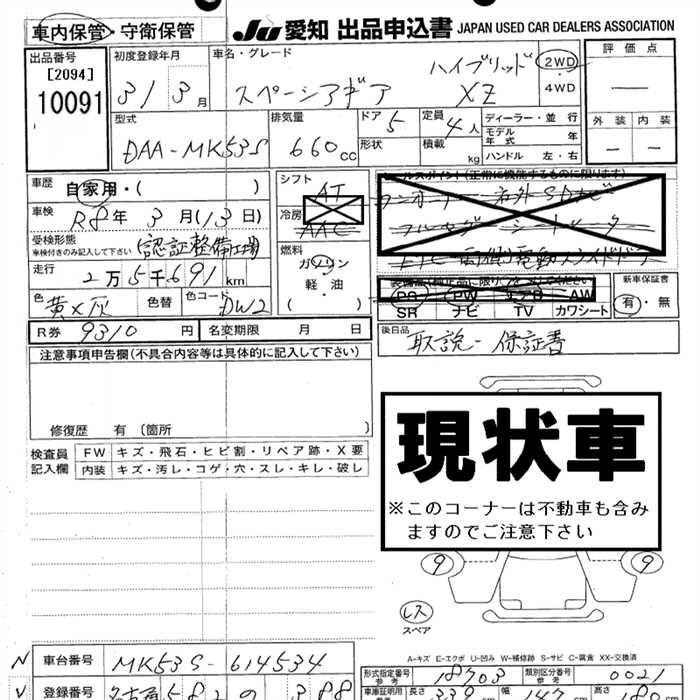 車内保管・守衛保管
JU 愛知 出品申込書 JAPAN USED CAR DEALERS ASSOCIATION
出品番号 [2094] 10091
初度登録年月 31年3月
車名・グレード スペーシアギア ハイブリッド XZ
2WD・4WD
評価点 —
外装 — 内装 —
型式 DAA-MK53S
排気量 660cc
ドア 5 形状
定員 4人 積載 kg
ディーラー・並行
モデル年式 年
ハンドル 左・右
車歴 自家用・( )
車検 R8年3月(13日)
受検形態 (認証整備工場)
車検付きのみ記入して下さい
走行 2万5千691km
色 黄×灰 色替 色コード DW2
シフト AT
冷房 AAC
燃料 ガソリン 軽・油 ( ・ )
セールスポイント(正常に機能するものに限ります)
PS PW AW
SR ナビ TV カワシート
新車保証書 有・無
R券 9310円 名変期限 月 日
後日品 取説-保証書
注意事項申告欄(不具合内容等は具体的に記入して下さい)
修復歴 有 (箇所 )
検査員記入欄
FW キズ・飛石・ヒビ割・リペア跡・X要
内装 キズ・汚レ・コゲ・穴・スレ・キレ・破レ
現状車
※このコーナーは不動車も含み
ますのでご注意下さい
9 9
レス
スペア
A-キズ E-エクボ U-凹み W-補修跡 S-サビ C-腐食 XX-交換済
N 車台番号 MK53S-614534
形式指定番号 参考 18703 類別区分番号 参考 0021
V 登録番号 名古屋582の388
車庫証明用 参考 長さ 339 幅 147 高さ 180